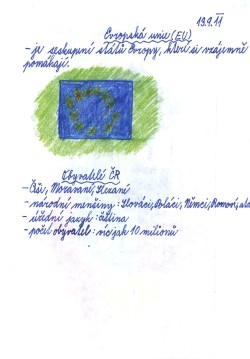 19.9.11
Evropská unie (EU)
- je seskupení států Evropy, kteří si vzájemně
pomáhají.
Obyvatelé ČR
- Češi, Moravané, Slezané
- národní menšiny: Slováci, Poláci, Němci, Romové, atd
- úřední jazyk: čeština
- počet obyvatel: víc jak 10 milionů